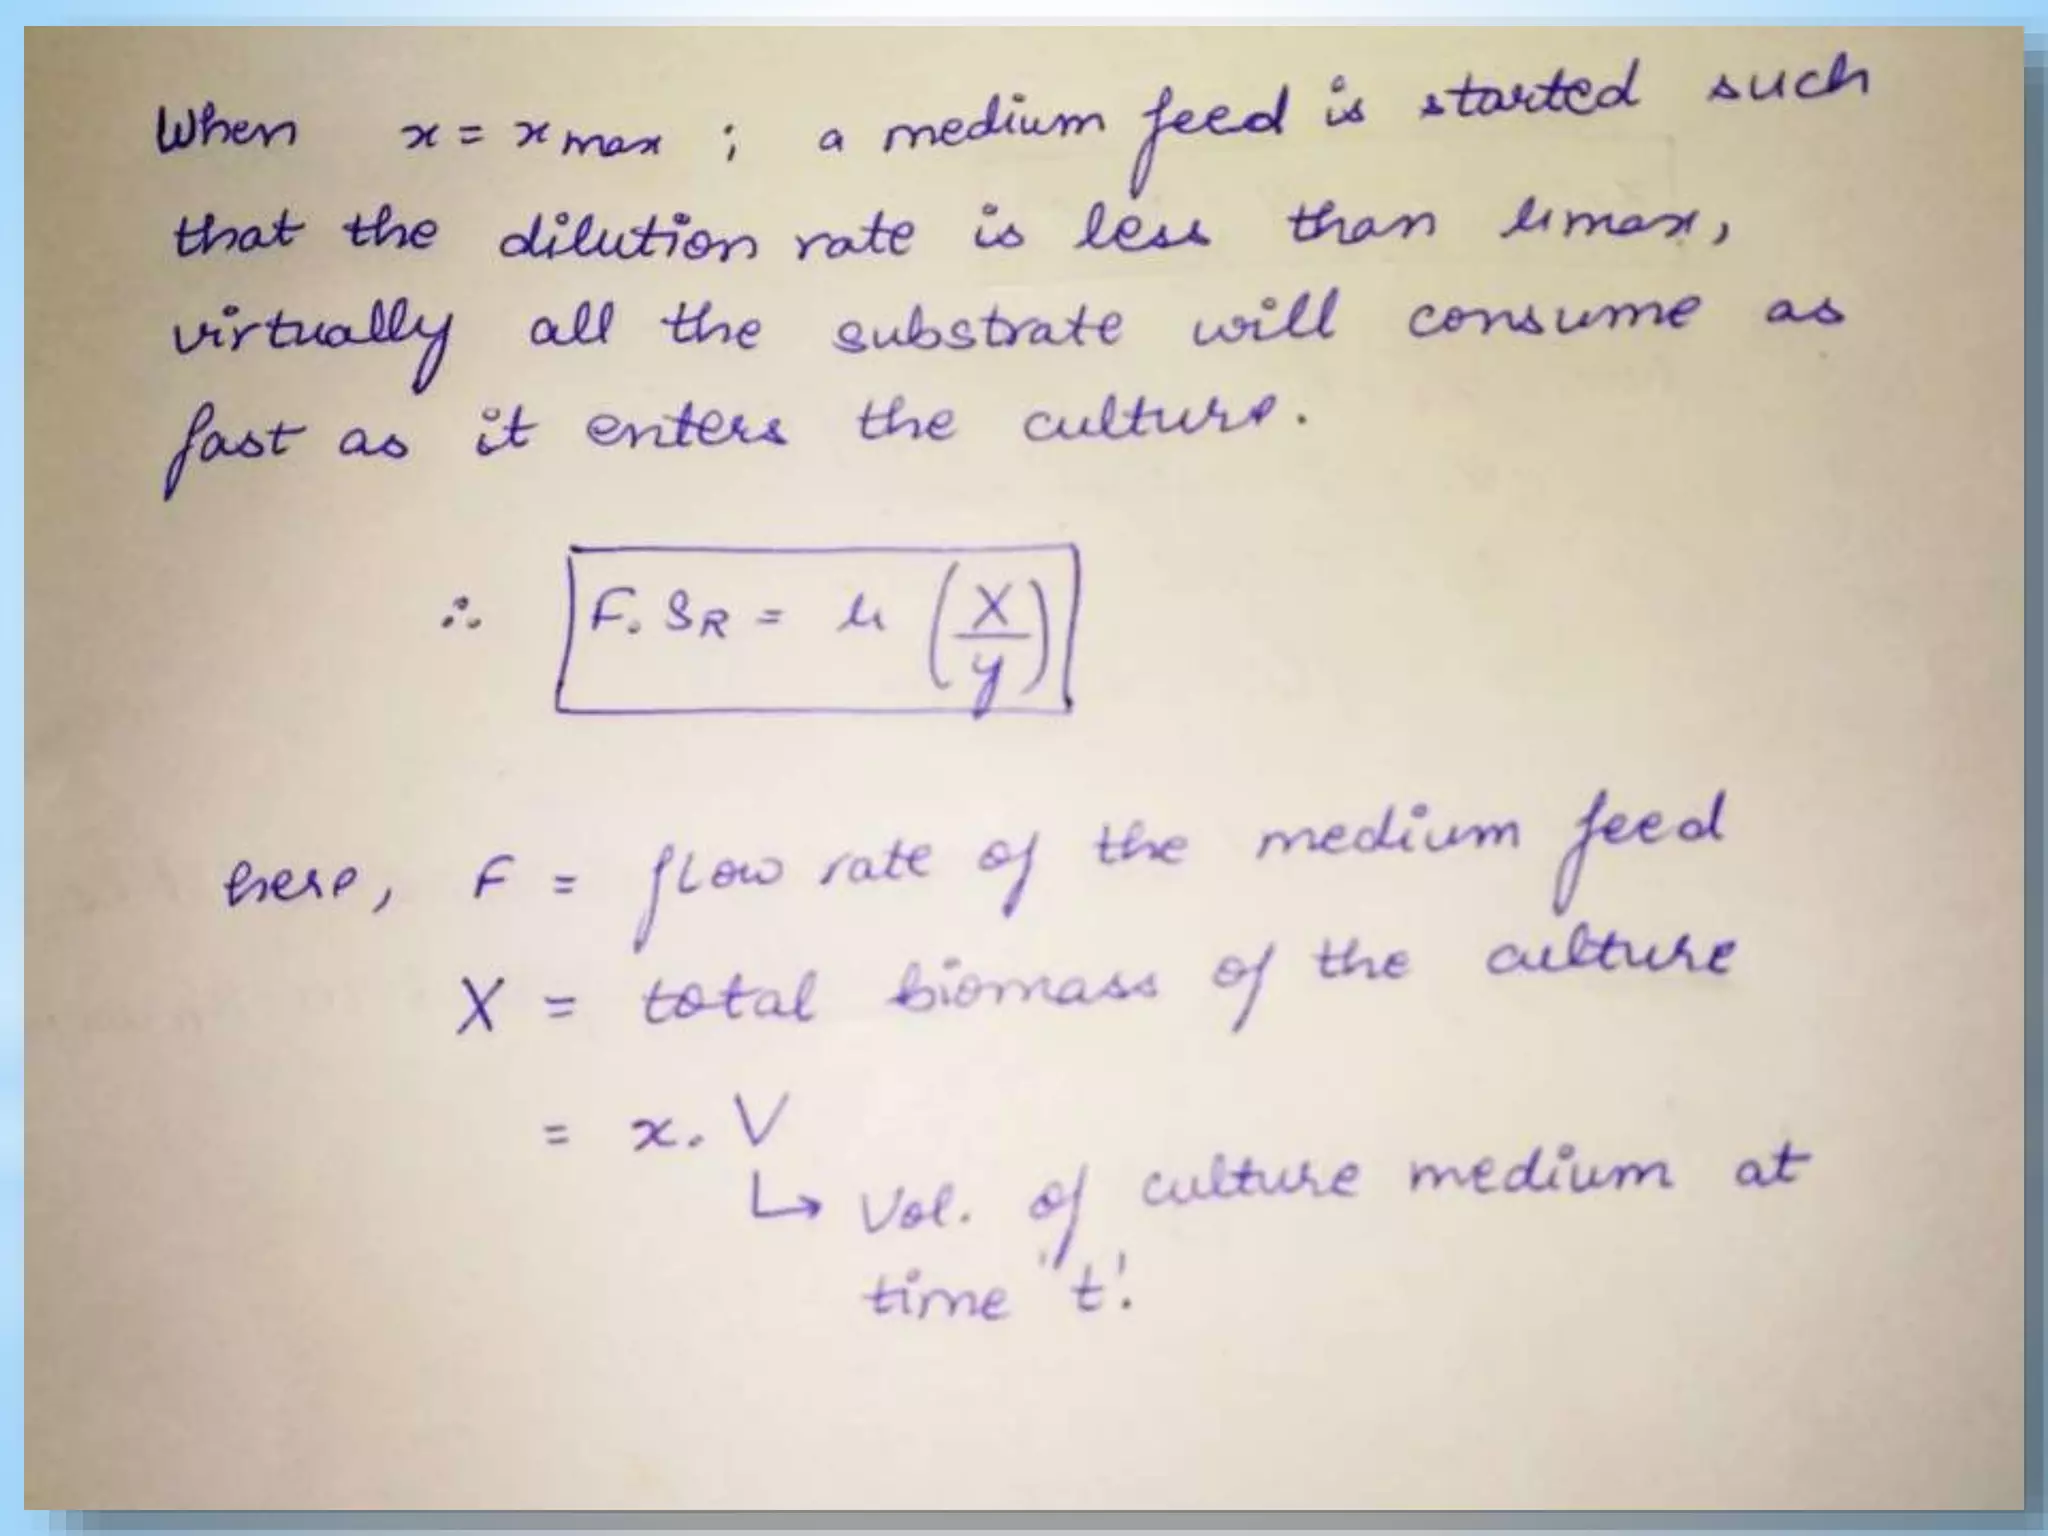 When x = x max ; a medium feed is started such
that the dilution rate is less than µmax,
virtually all the substrate will consume as
fast as it enters the culture.
∴ F. SR = µ (X/y)
here, F = flow rate of the medium feed
X = total biomass of the culture
= x. V
↳ Vol. of culture medium at
time 't'.